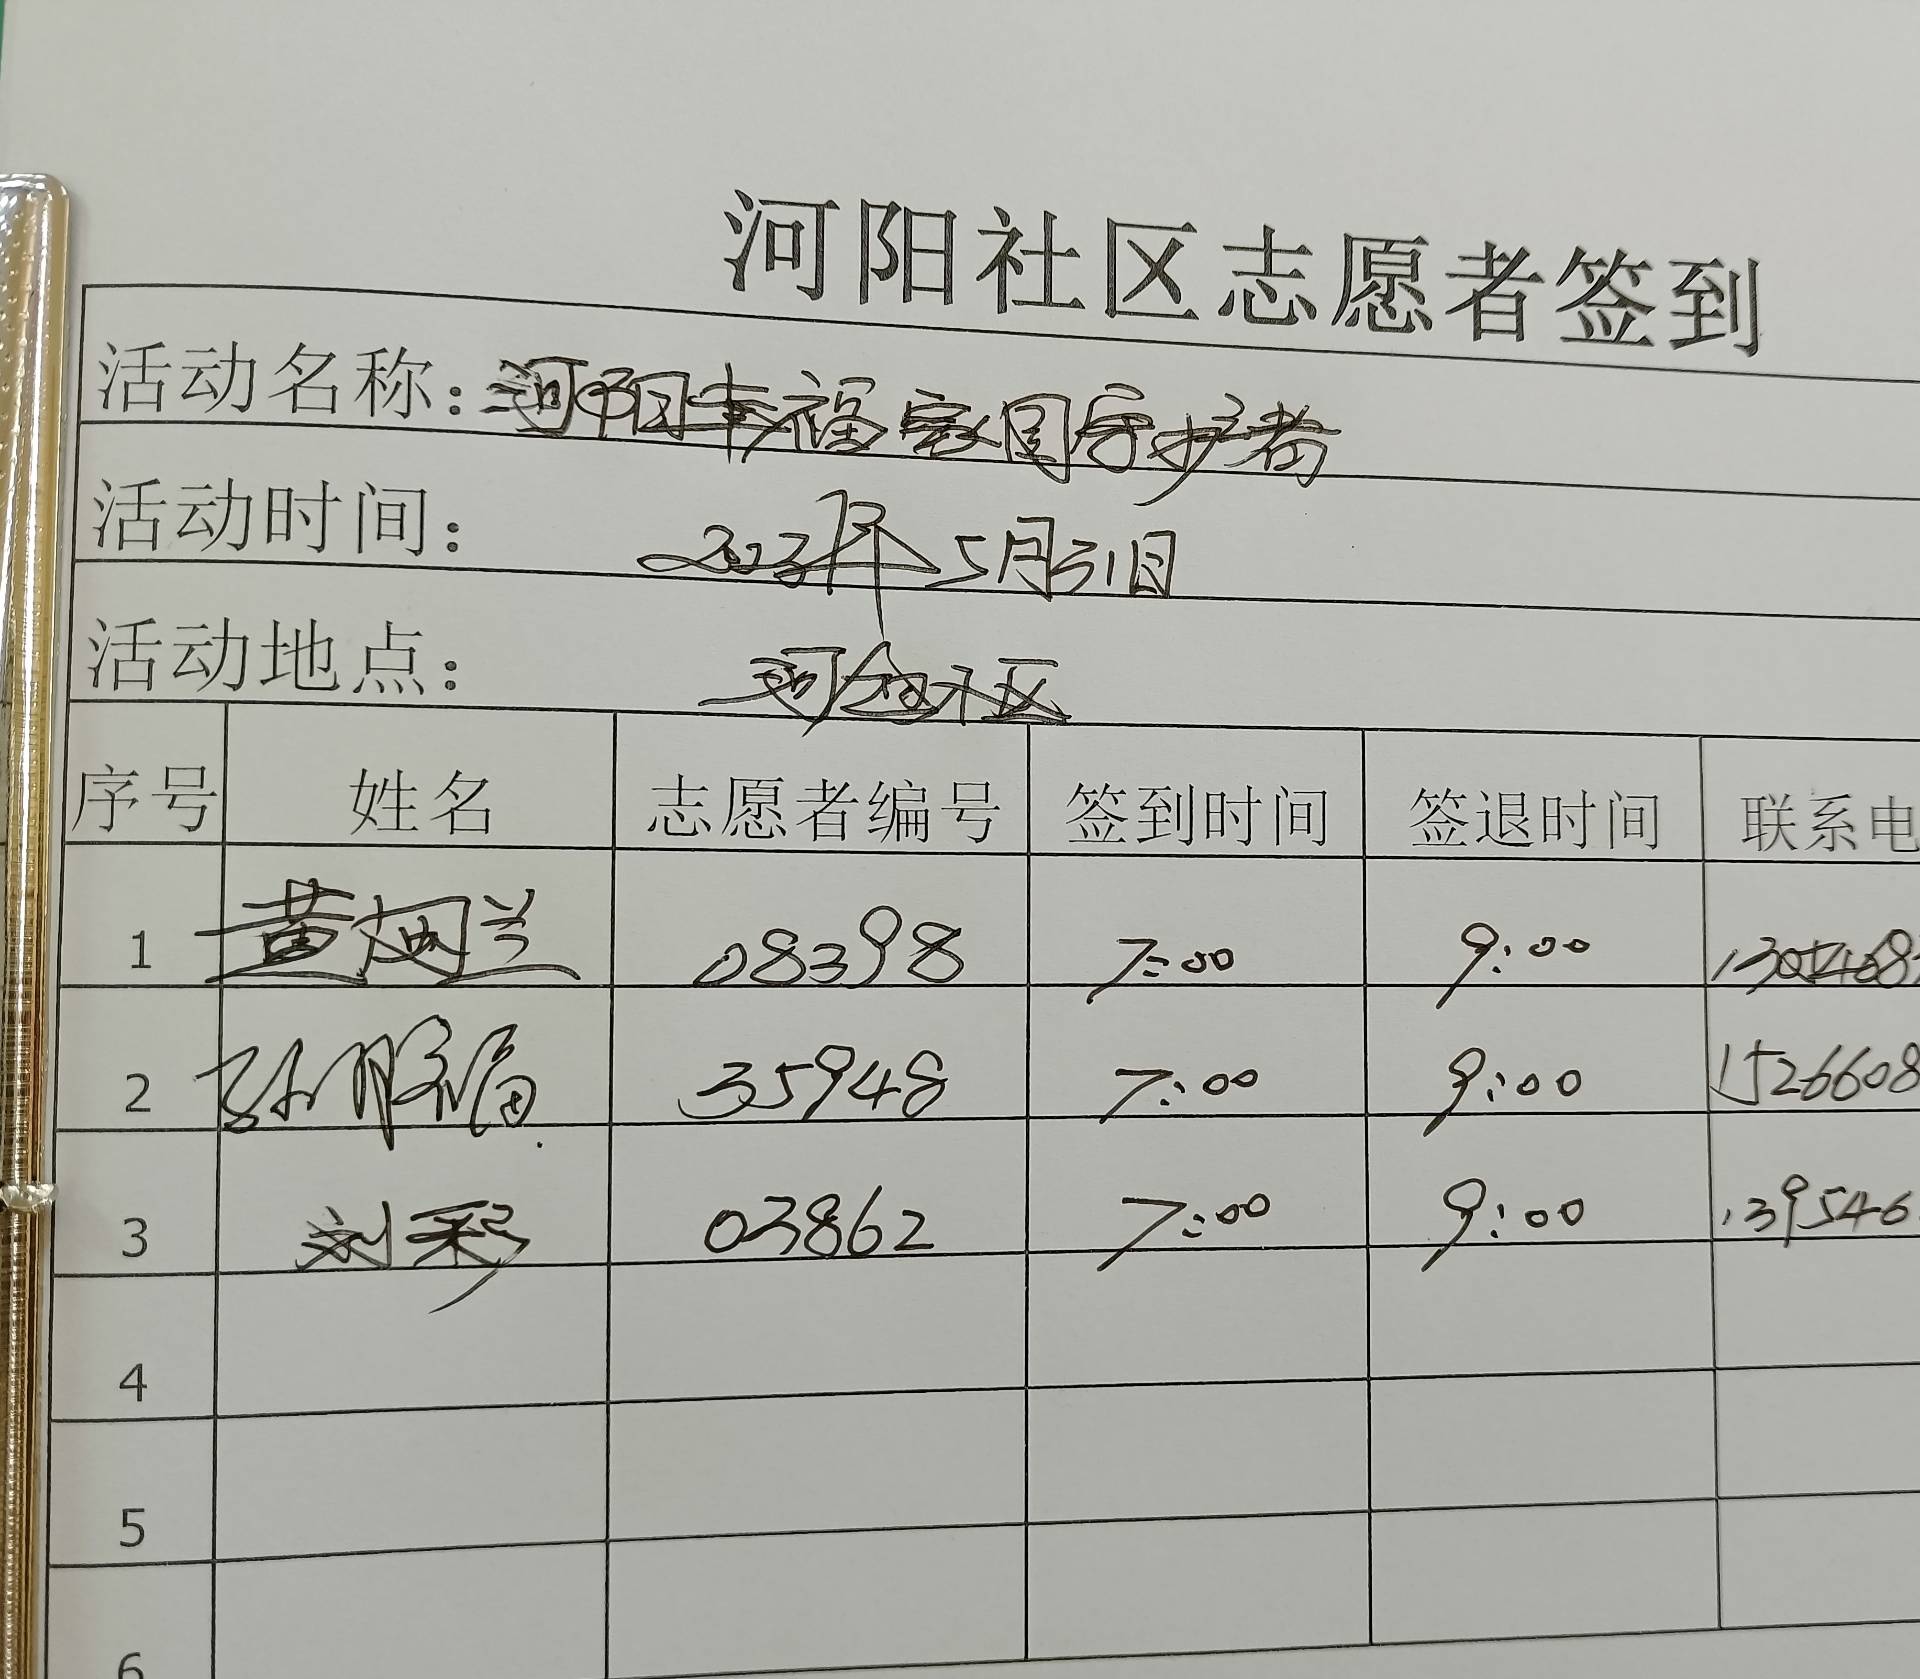 河阳社区志愿者签到
活动名称：河阳幸福家园守护者
活动时间： 2023年5月31日
活动地点： 河阳社区
序号 姓名 志愿者编号 签到时间 签退时间 联系电
1 黄 兰 08398 7:00 9:00 1305468
2 孙胜福 35948 7:00 9:00 1526608
3 刘彩 03862 7:00 9:00 139546
4
5
6